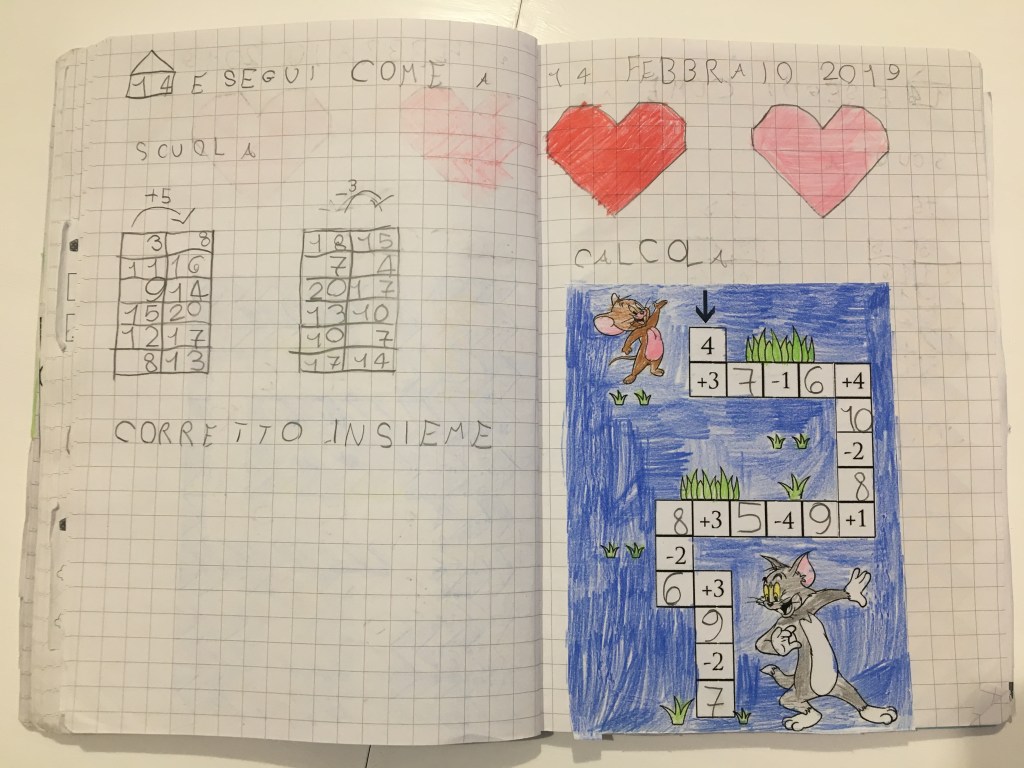 14 E SEGUI COME A
SCUOLA
+5
3 8
11 16
9 14
15 20
12 17
8 13
-3
18 15
7 4
20 17
13 10
10 7
17 14
CORRETTO INSIEME
14 FEBBRAIO 2019
CALCOLA
4
+3 7 -1 6 +4
10
-2
8
8 +3 5 -4 9 +1
-2
6 +3
9
-2
7